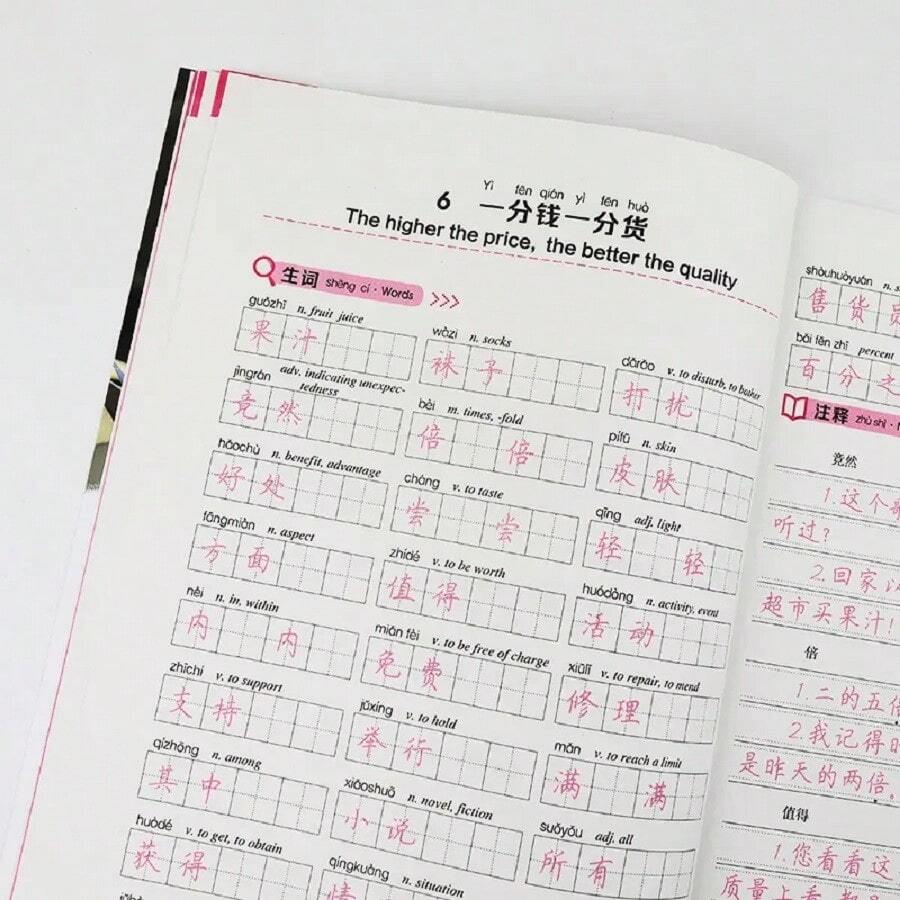 Yì fēn qián yì fēn huò
6 一分钱一分货
The higher the price, the better the quality
生词 shēng cí · Words
guǒzhī n. fruit juice
果汁
jìngrán adv. indicating unexpec-
tedness
竟然
hǎochù n. benefit, advantage
好处
fāngmiàn n. aspect
方面
nèi n. in, within
内 内
zhīchí v. to support
支持
qízhōng n. among
其中
huòdé v. to get, to obtain
获得
wàzi n. socks
袜子
bèi m. times, -fold
倍 倍
cháng v. to taste
尝 尝
zhídé v. to be worth
值得
miǎn fèi v. to be free of charge
免费
jǔxíng v. to hold
举行
xiǎoshuō n. novel, fiction
小说
qíngkuàng n. situation
情
dǎrǎo v. to disturb, to bother
打扰
pífū n. skin
皮肤
qīng adj. light
轻 轻
huódòng n. activity, event
活动
xiūlǐ v. to repair, to mend
修理
mǎn v. to reach a limit
满 满
suǒyǒu adj. all
所有
shòuhuòyuán n. s
售货员
bǎi fēn zhī percent
百分之
注释 zhùshì ·
竟然
1.这个
听过？
2.回家
超市买果汁！
倍
1二的五倍
2我记得
是昨天的两倍。
值得
1.您看看这
质量上看